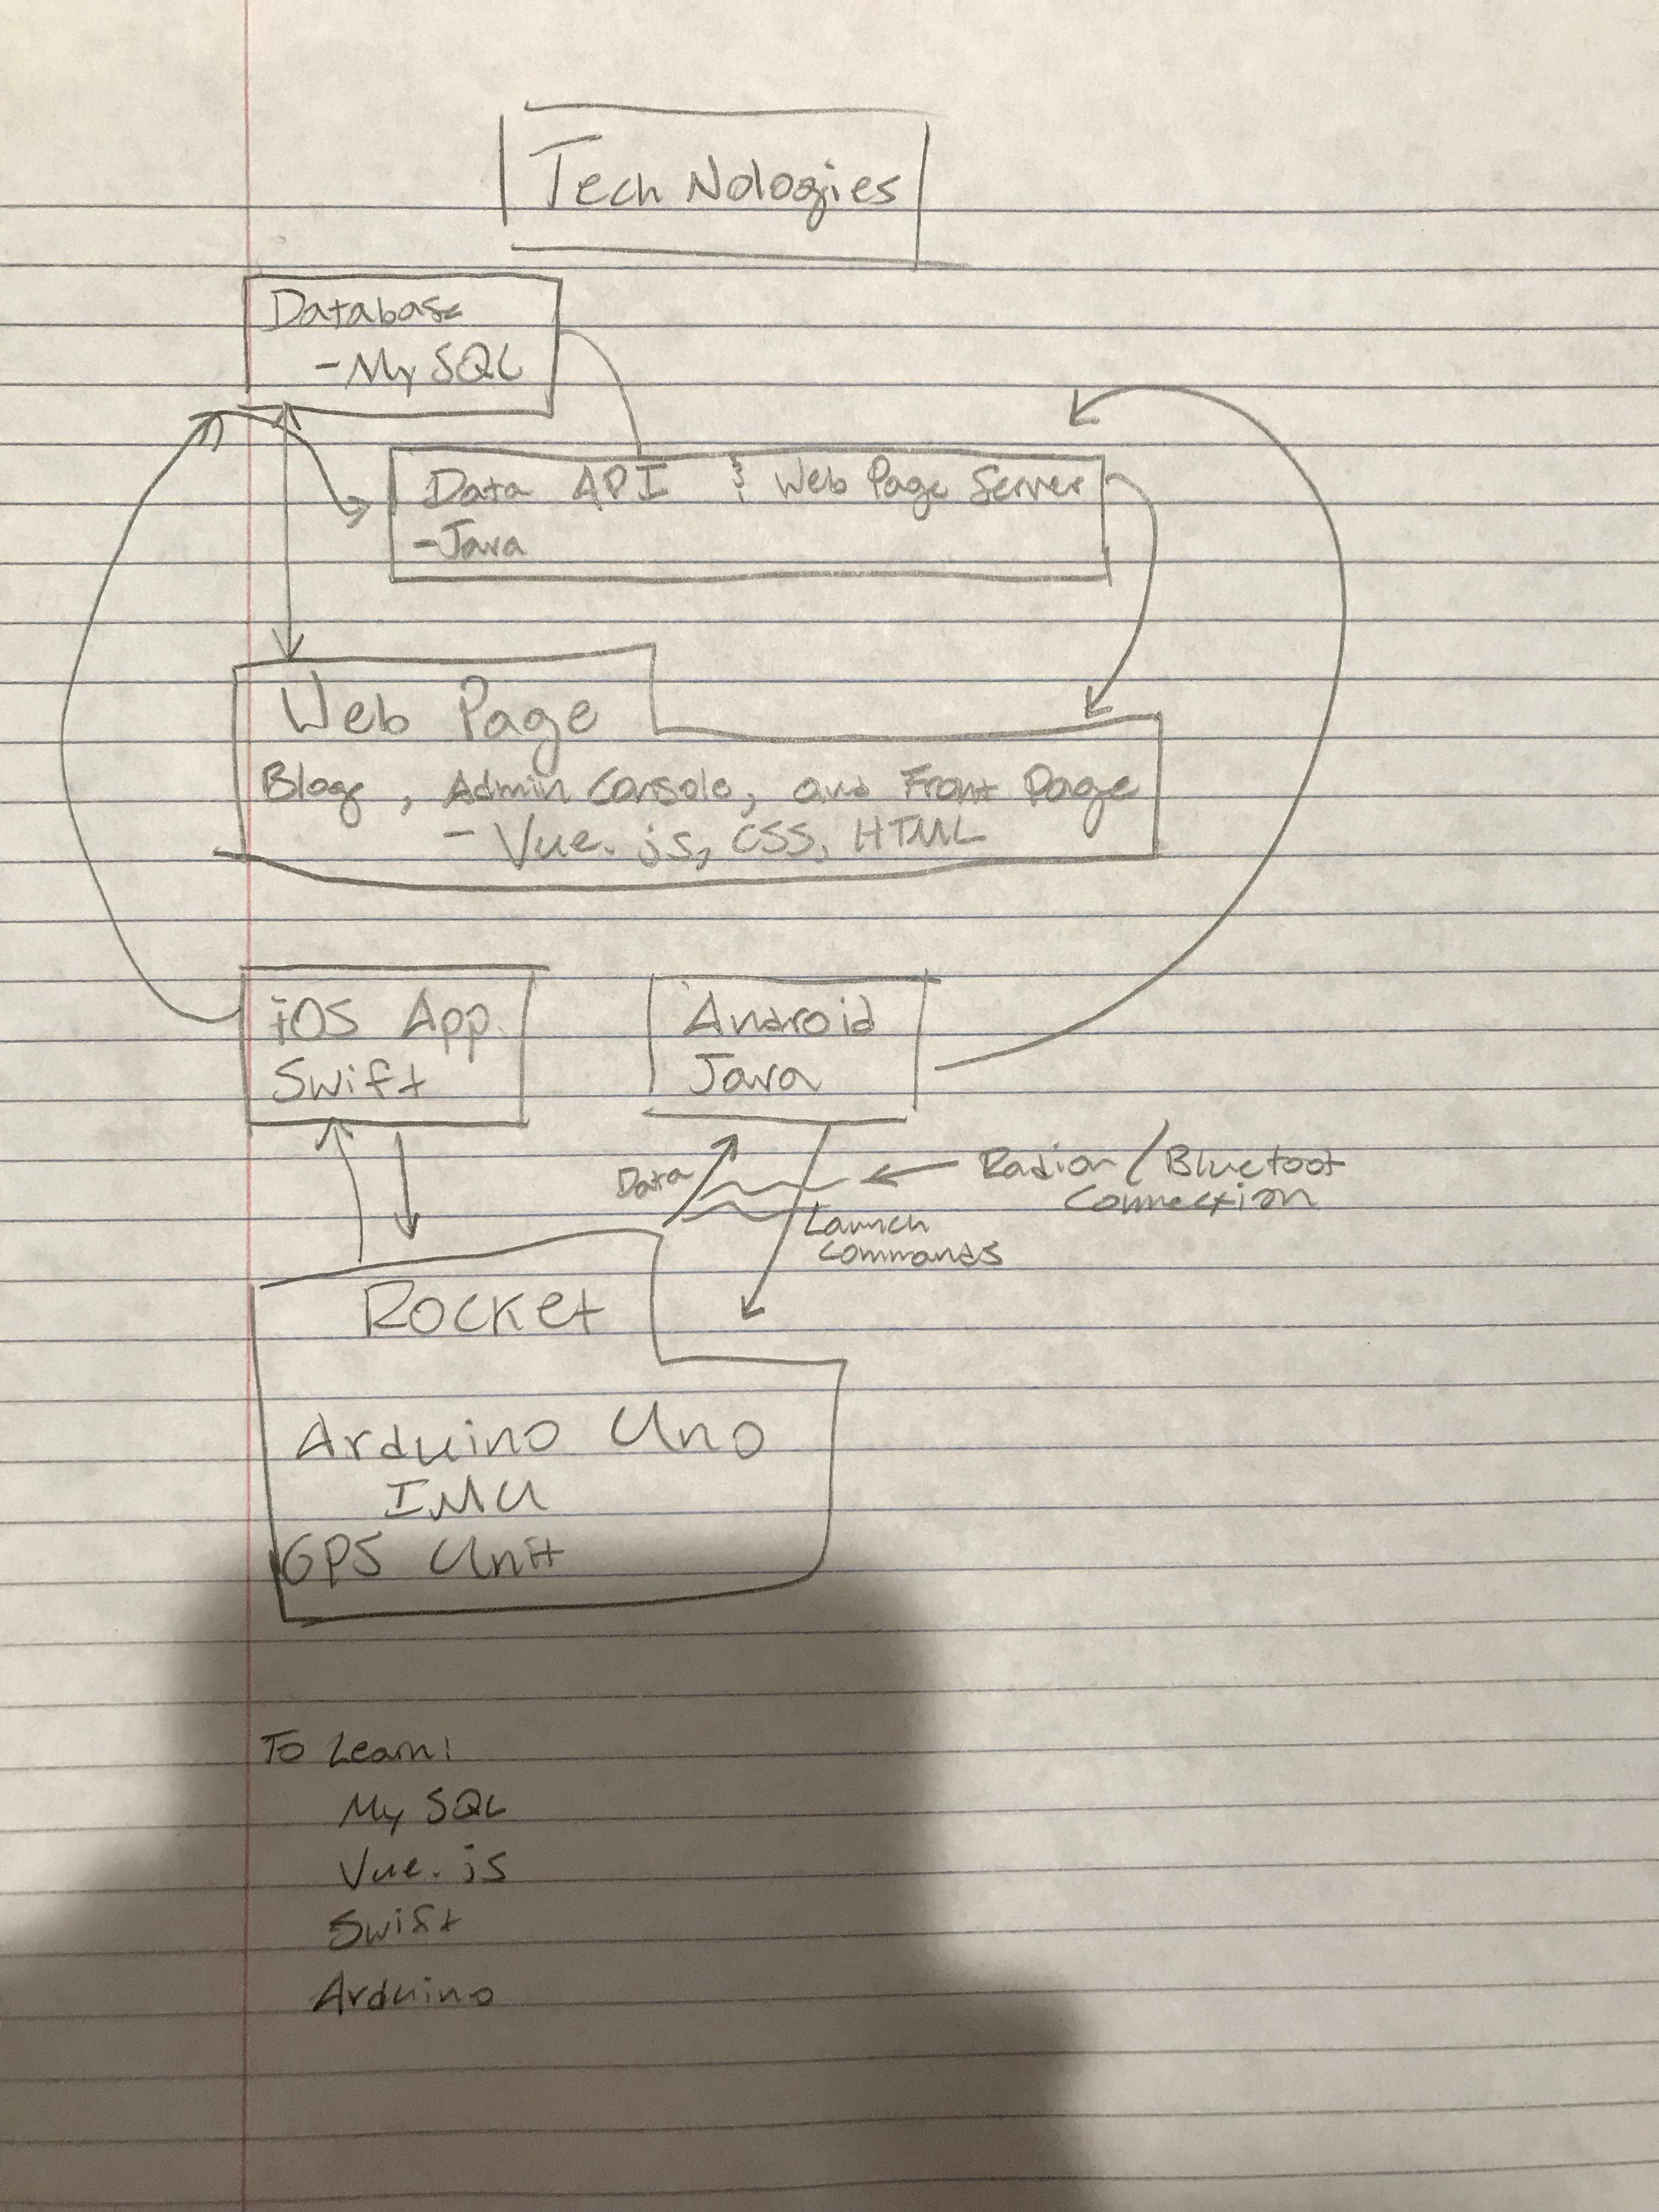 TechNologies
Database
-MySQL
Data API & Web Page Server
-Java
Web Page
Blog, Admin Console, and Front Page
- Vue.js, CSS, HTML
iOS App
Swift
Android
Java
Data
Radion/Bluetoot
Connection
Launch
Commands
Rocket
Arduino Uno
IMU
GPS Unit
To Learn:
My SQL
Vue.js
Swift
Arduino